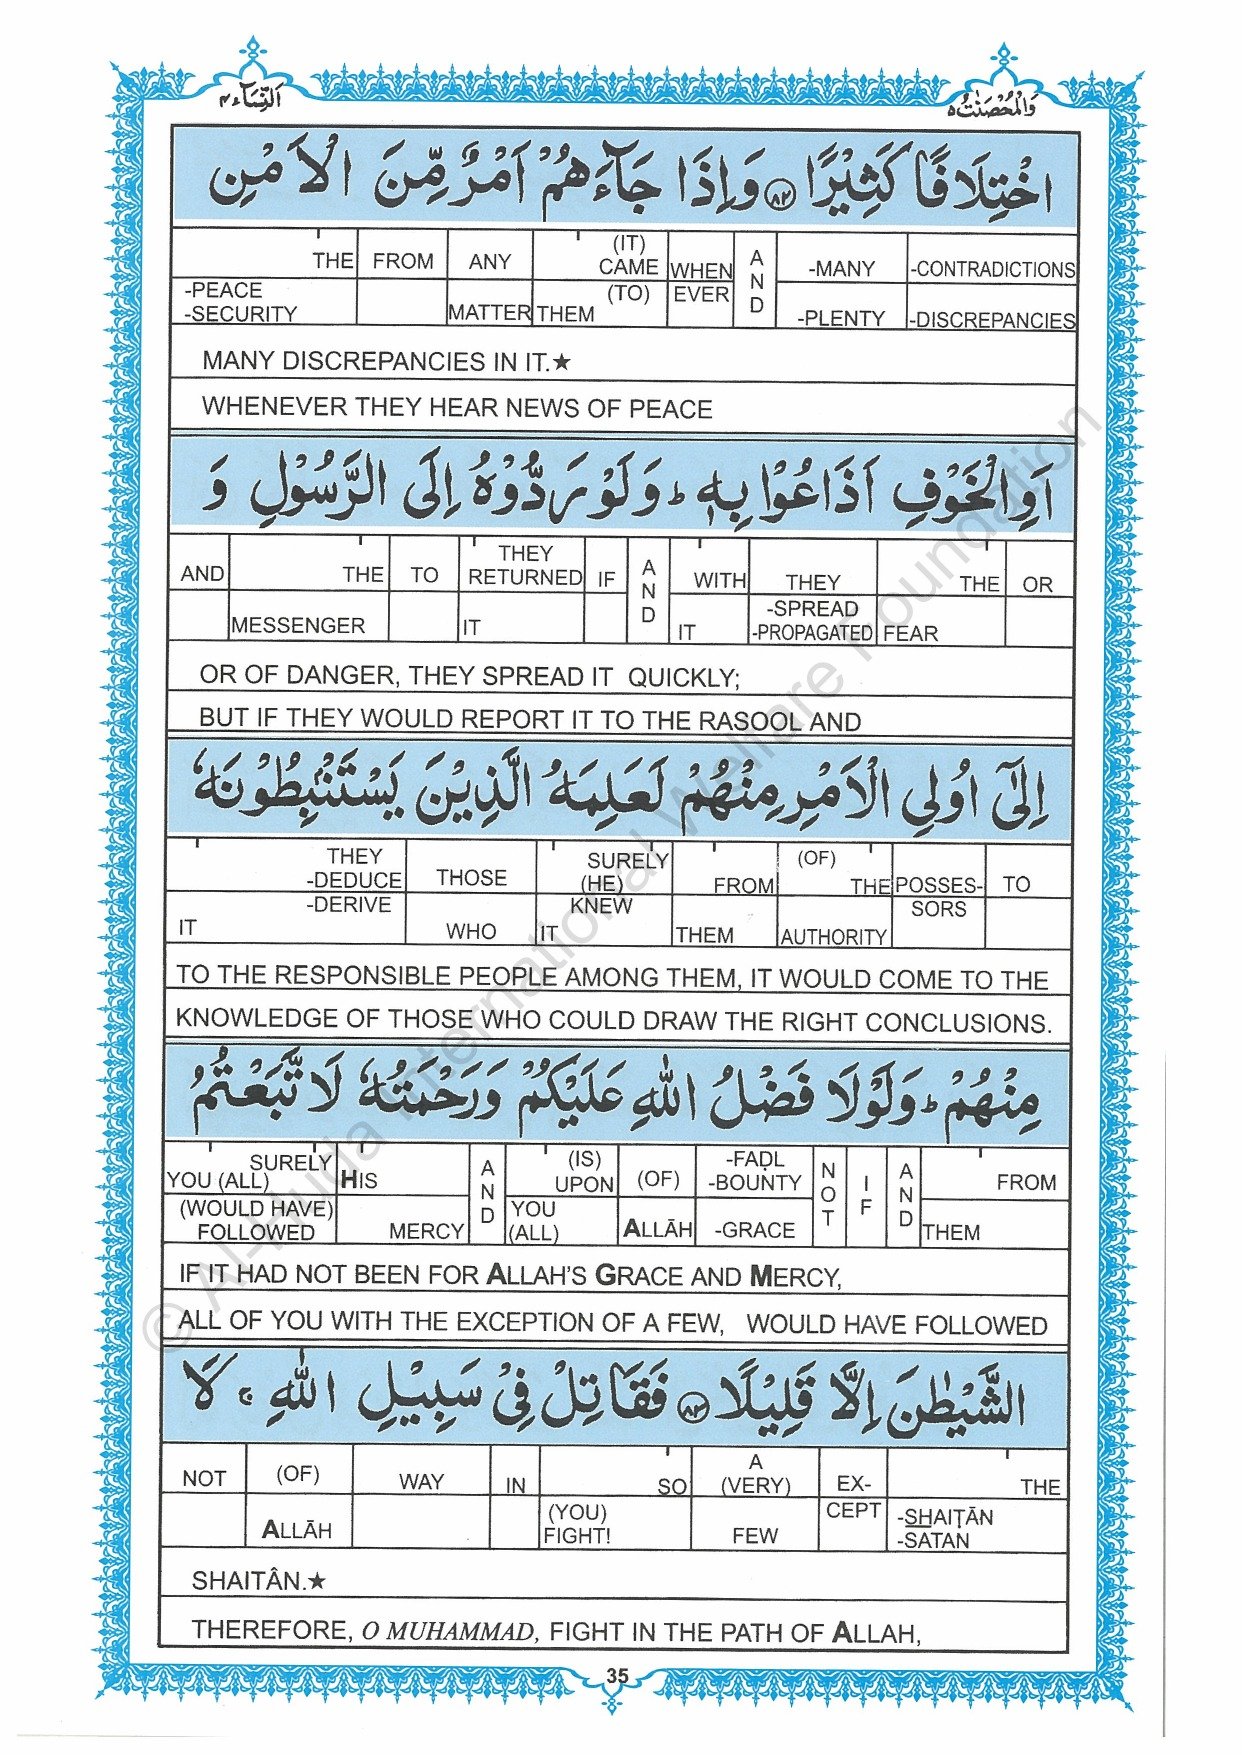 النِّسَآء ٤
وَالْمُحْصَنٰتُ ٥
اخْتِلَافًا كَثِيْرًا ﴿٨٢﴾ وَاِذَا جَآءَهُمْ اَمْرٌ مِّنَ الْاَمْنِ
THE FROM ANY (IT) CAME WHEN AND -MANY -CONTRADICTIONS
-PEACE -SECURITY MATTER (TO) THEM EVER -PLENTY -DISCREPANCIES
MANY DISCREPANCIES IN IT.★
WHENEVER THEY HEAR NEWS OF PEACE
اَوِ الْخَوْفِ اَذَاعُوْا بِهٖ ؕ وَلَوْ رَدُّوْهُ اِلَى الرَّسُوْلِ وَ
AND THE TO THEY RETURNED IF AND WITH THEY THE OR
MESSENGER IT IT -SPREAD -PROPAGATED FEAR
OR OF DANGER, THEY SPREAD IT QUICKLY;
BUT IF THEY WOULD REPORT IT TO THE RASOOL AND
اِلٰٓى اُولِى الْاَمْرِ مِنْهُمْ لَعَلِمَهُ الَّذِيْنَ يَسْتَنْۢبِطُوْنَهٗ
THEY -DEDUCE THOSE SURELY (HE) FROM (OF) THE POSSES- TO
IT -DERIVE WHO KNEW IT THEM AUTHORITY SORS
TO THE RESPONSIBLE PEOPLE AMONG THEM, IT WOULD COME TO THE
KNOWLEDGE OF THOSE WHO COULD DRAW THE RIGHT CONCLUSIONS.
مِنْهُمْ ؕ وَلَوْلَا فَضْلُ اللّٰهِ عَلَيْكُمْ وَرَحْمَتُهٗ لَاتَّبَعْتُمُ
SURELY YOU (ALL) HIS AND (IS) UPON (OF) -FAḌL -BOUNTY NOT IF AND FROM
(WOULD HAVE) FOLLOWED MERCY YOU (ALL) ALLĀH -GRACE THEM
IF IT HAD NOT BEEN FOR ALLAH'S GRACE AND MERCY,
ALL OF YOU WITH THE EXCEPTION OF A FEW, WOULD HAVE FOLLOWED
الشَّيْطٰنَ اِلَّا قَلِيْلًا ﴿٨٣﴾ فَقَاتِلْ فِىْ سَبِيْلِ اللّٰهِ ۚ لَا
NOT (OF) WAY IN SO A (VERY) EX- THE
ALLĀH (YOU) FIGHT! FEW CEPT -SHAIṬĀN -SATAN
SHAITÂN.★
THEREFORE, O MUHAMMAD, FIGHT IN THE PATH OF ALLAH,
35
© Al-Huda International Welfare Foundation